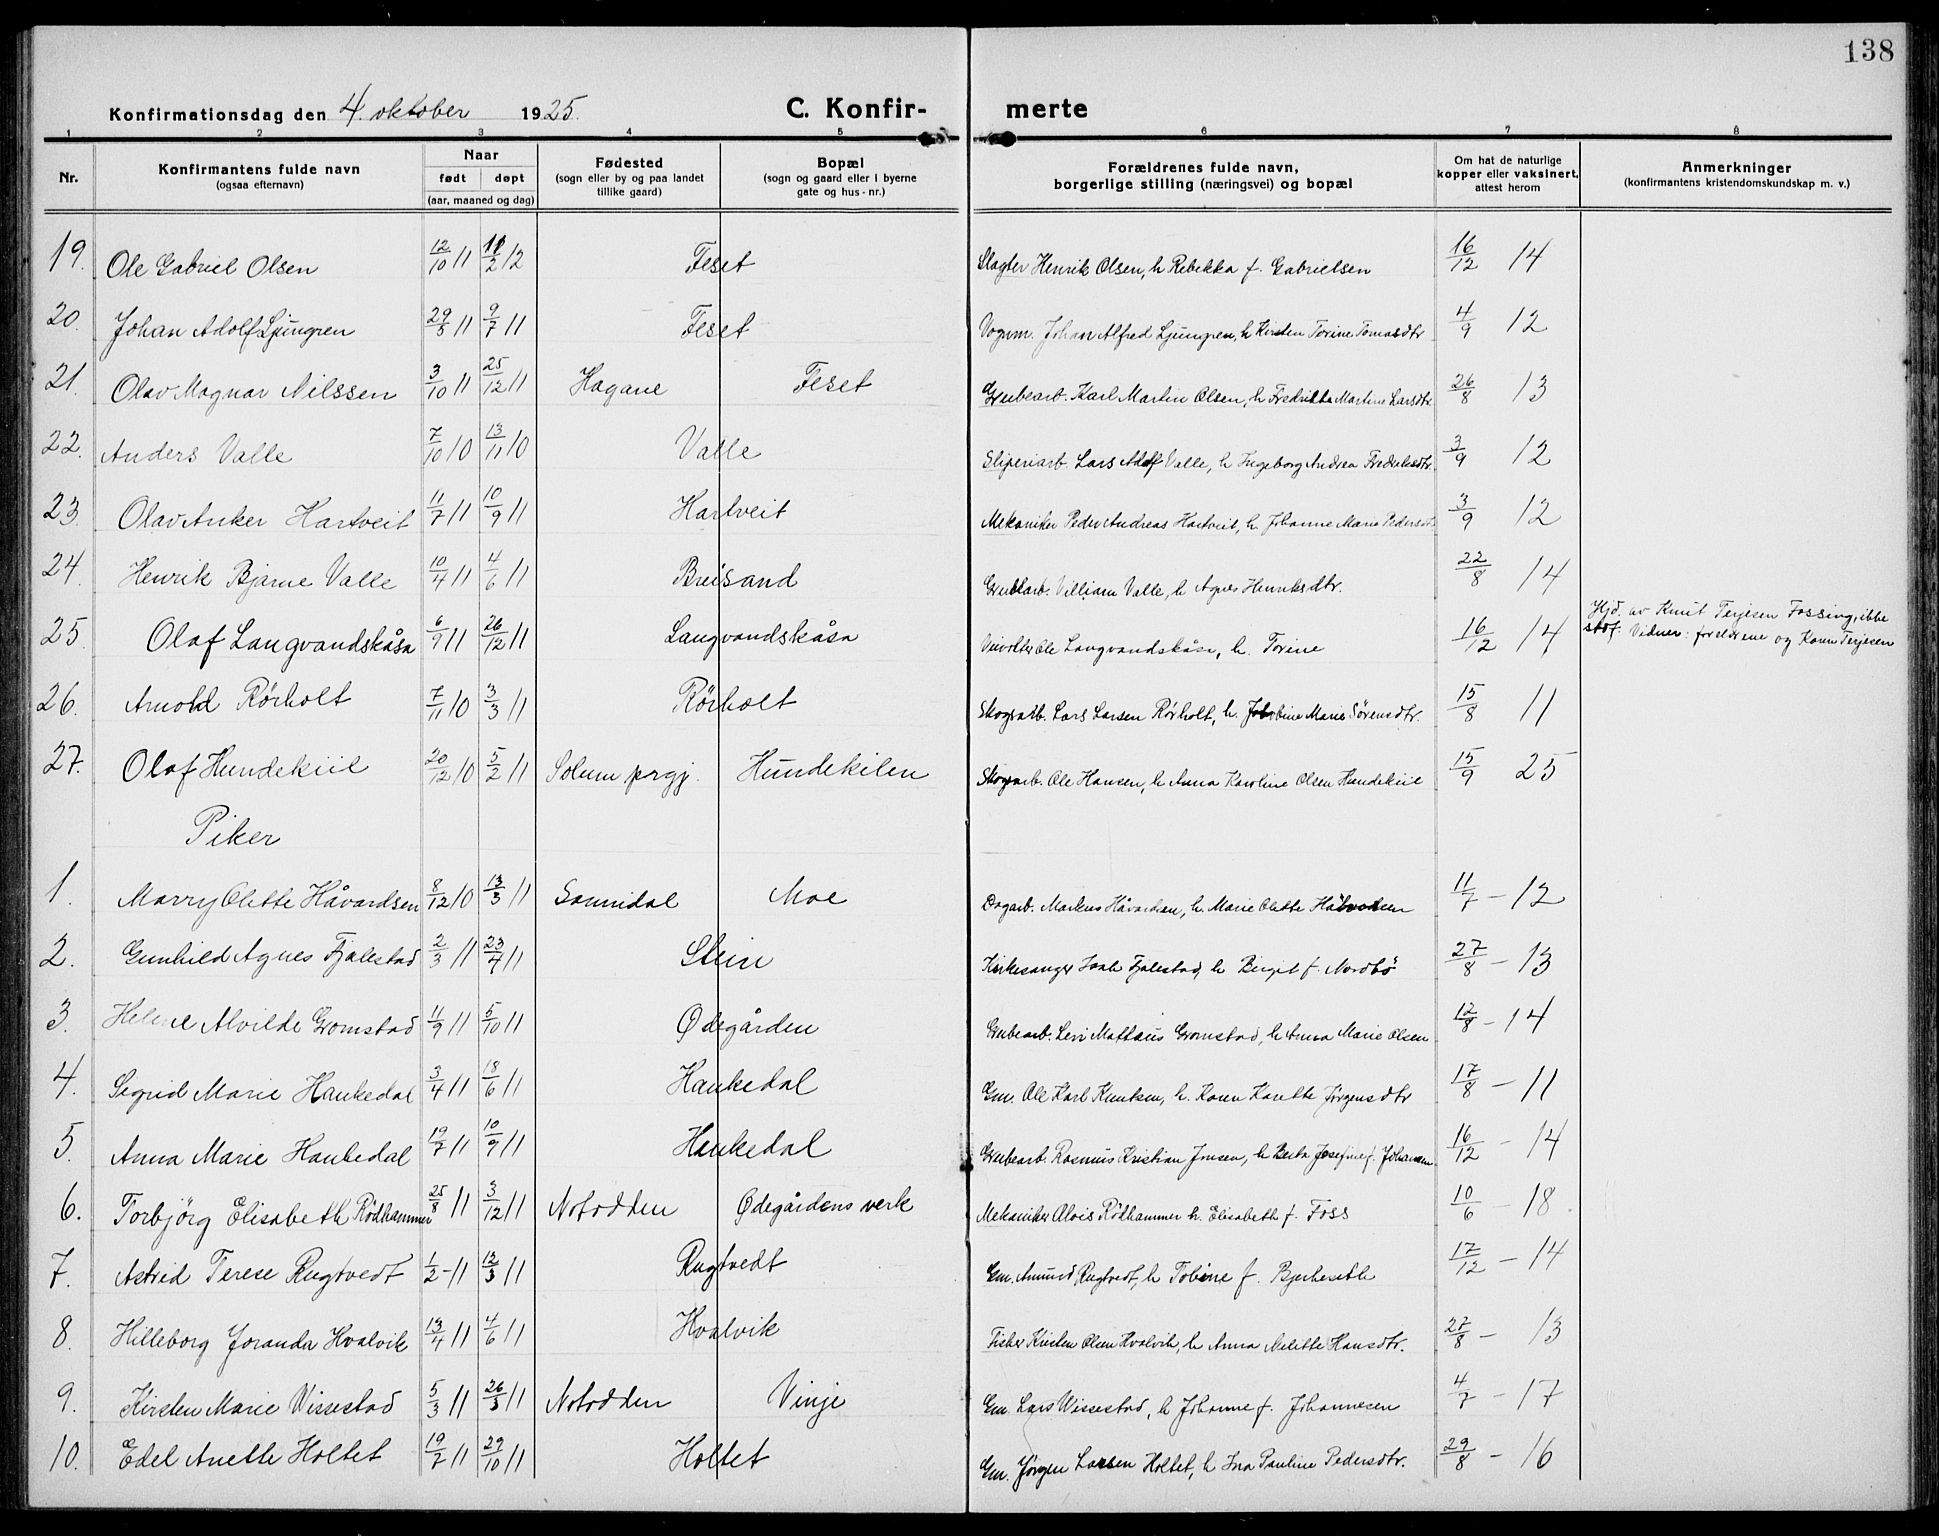 138
Konfirmationsdag den 4. oktober 1925. C. Konfir- merte
1 2 3 4 5 6 7 8
Nr. Konfirmantens fulde navn (ogsaa efternavn) Naar født døpt (aar, maaned og dag) Fødested (sogn eller by og paa landet tillike gaard) Bopæl (sogn og gaard eller i byerne gate og hus-nr.) Forældrenes fulde navn, borgerlige stilling (næringsvei) og bopæl Om hat de naturlige kopper eller vaksinert, attest herom Anmerkninger (konfirmantens kristendomskundskap m. v.)
19. Ole Gabriel Olsen 12/10 11 11/2 12 Feset Slagter Henrik Olsen, h Rebekka f. Gabrielsen 16/12 14
20. Johan Adolf Ljungren 29/5 11 9/7 11 Feset Vognm. Johan Alfred Ljungren, h Kirsten Torine Tomasdtr 4/9 12
21. Olav Magnar Nilssen 3/10 11 25/12 11 Hagane Feset Grubearb. Karl Martin Olsen, h Fredrikka Martine Larsdtr. 26/8 13
22. Anders Valle 7/10 10 13/11 10 Valle Sliperiarb. Lars Adolf Valle, h Ingeborg Andrea Fredriksdtr. 3/9 12
23. Olav Anker Hartveit 11/7 11 10/9 11 Hartveit Mekaniker Peder Andreas Hartveit, h. Johanne Marie Pedersdt. 3/9 12
24. Henrik Bjarne Valle 10/4 11 4/6 11 Breisand Grubearb. Villiam Valle, h Agnes Henriksdtr. 22/8 14
25 Olaf Langvandskåsa 6/9 11 26/12 11 Langvandskåsa Ole Langvandskåsa, h. Torine 16/12 14 Hjd. av Knut Terjesen Fossing, ikke
stdf. Vidner: foreldrene og Karen Terjesen
26. Arnold Rørholt 7/11 10 3/3 11 Rørholt Skogsarb. Lars Larsen Rørholt, h. Marie Sørensdtr. 15/8 11
27. Olaf Hundekiil 20/12 10 5/2 11 Solum prgj. Hundekilen Skogsarb. Ole Hansen, h Anna Karoline Olsen Hundekiil 15/9 25
Piker
1. Marry Olette Håvardsen 8/12 10 13/3 11 Sannidal Moe Dagarb. Markus Håvardsen, h. Marie Olette Håvardsen 11/7 – 12
2. Gunhild Agnes Fjalestad 2/3 11 23/4 11 Stein Kirkesanger Isak Fjalestad, h Birgit f. Nordbö 27/8 – 13
3. Helene Alvilde Gromstad 11/9 11 5/10 11 Ødegården Grubearb. Levi Mattæus Gromstad, h Anna Marie Olsen 12/8 – 14
4. Sigrid Marie Haukedal 3/4 11 18/6 11 Haukedal Gm. Ole Karl Knutsen, h. Karen Karette Jørgensdtr 17/8 – 11
5. Anna Marie Haukedal 19/7 11 10/9 11 Haukedal Grubearb. Rasmus Kristian Jonsen, h Berta Josefine f. Johansen 16/12 – 14
6. Torbjörg Elisabeth Rödhammer 25/8 11 3/12 11 Notodden Ødegårdens verk Mekaniker Alois Rödhammer h. Elisabeth f. Foss 10/6 – 18
7. Astrid Terese Rugtvedt 1/2 – 11 12/3 11 Rugtvedt Gm. Amund Rugtvedt, h Tobine f. Bjerkeseth 17/12 – 14
8. Hilleborg Joranda Hvalvik 13/4 11 4/6 11 Hvalvik Fisker Kirsten Olsen Hvalvik, h Anna Nelette Hansdtr. 27/8 – 13
9. Kirsten Marie Vissestad 5/3 11 26/3 11 Notodden Vinje Gm. Lars Vissestad, h Johanne f. Johannesen 4/7 – 17
10. Edel Anette Holtet 19/7 11 29/10 11 Holtet Gm. Jørgen Larsen Holtet, h Ina Pauline Pedersdtr. 29/8 – 16